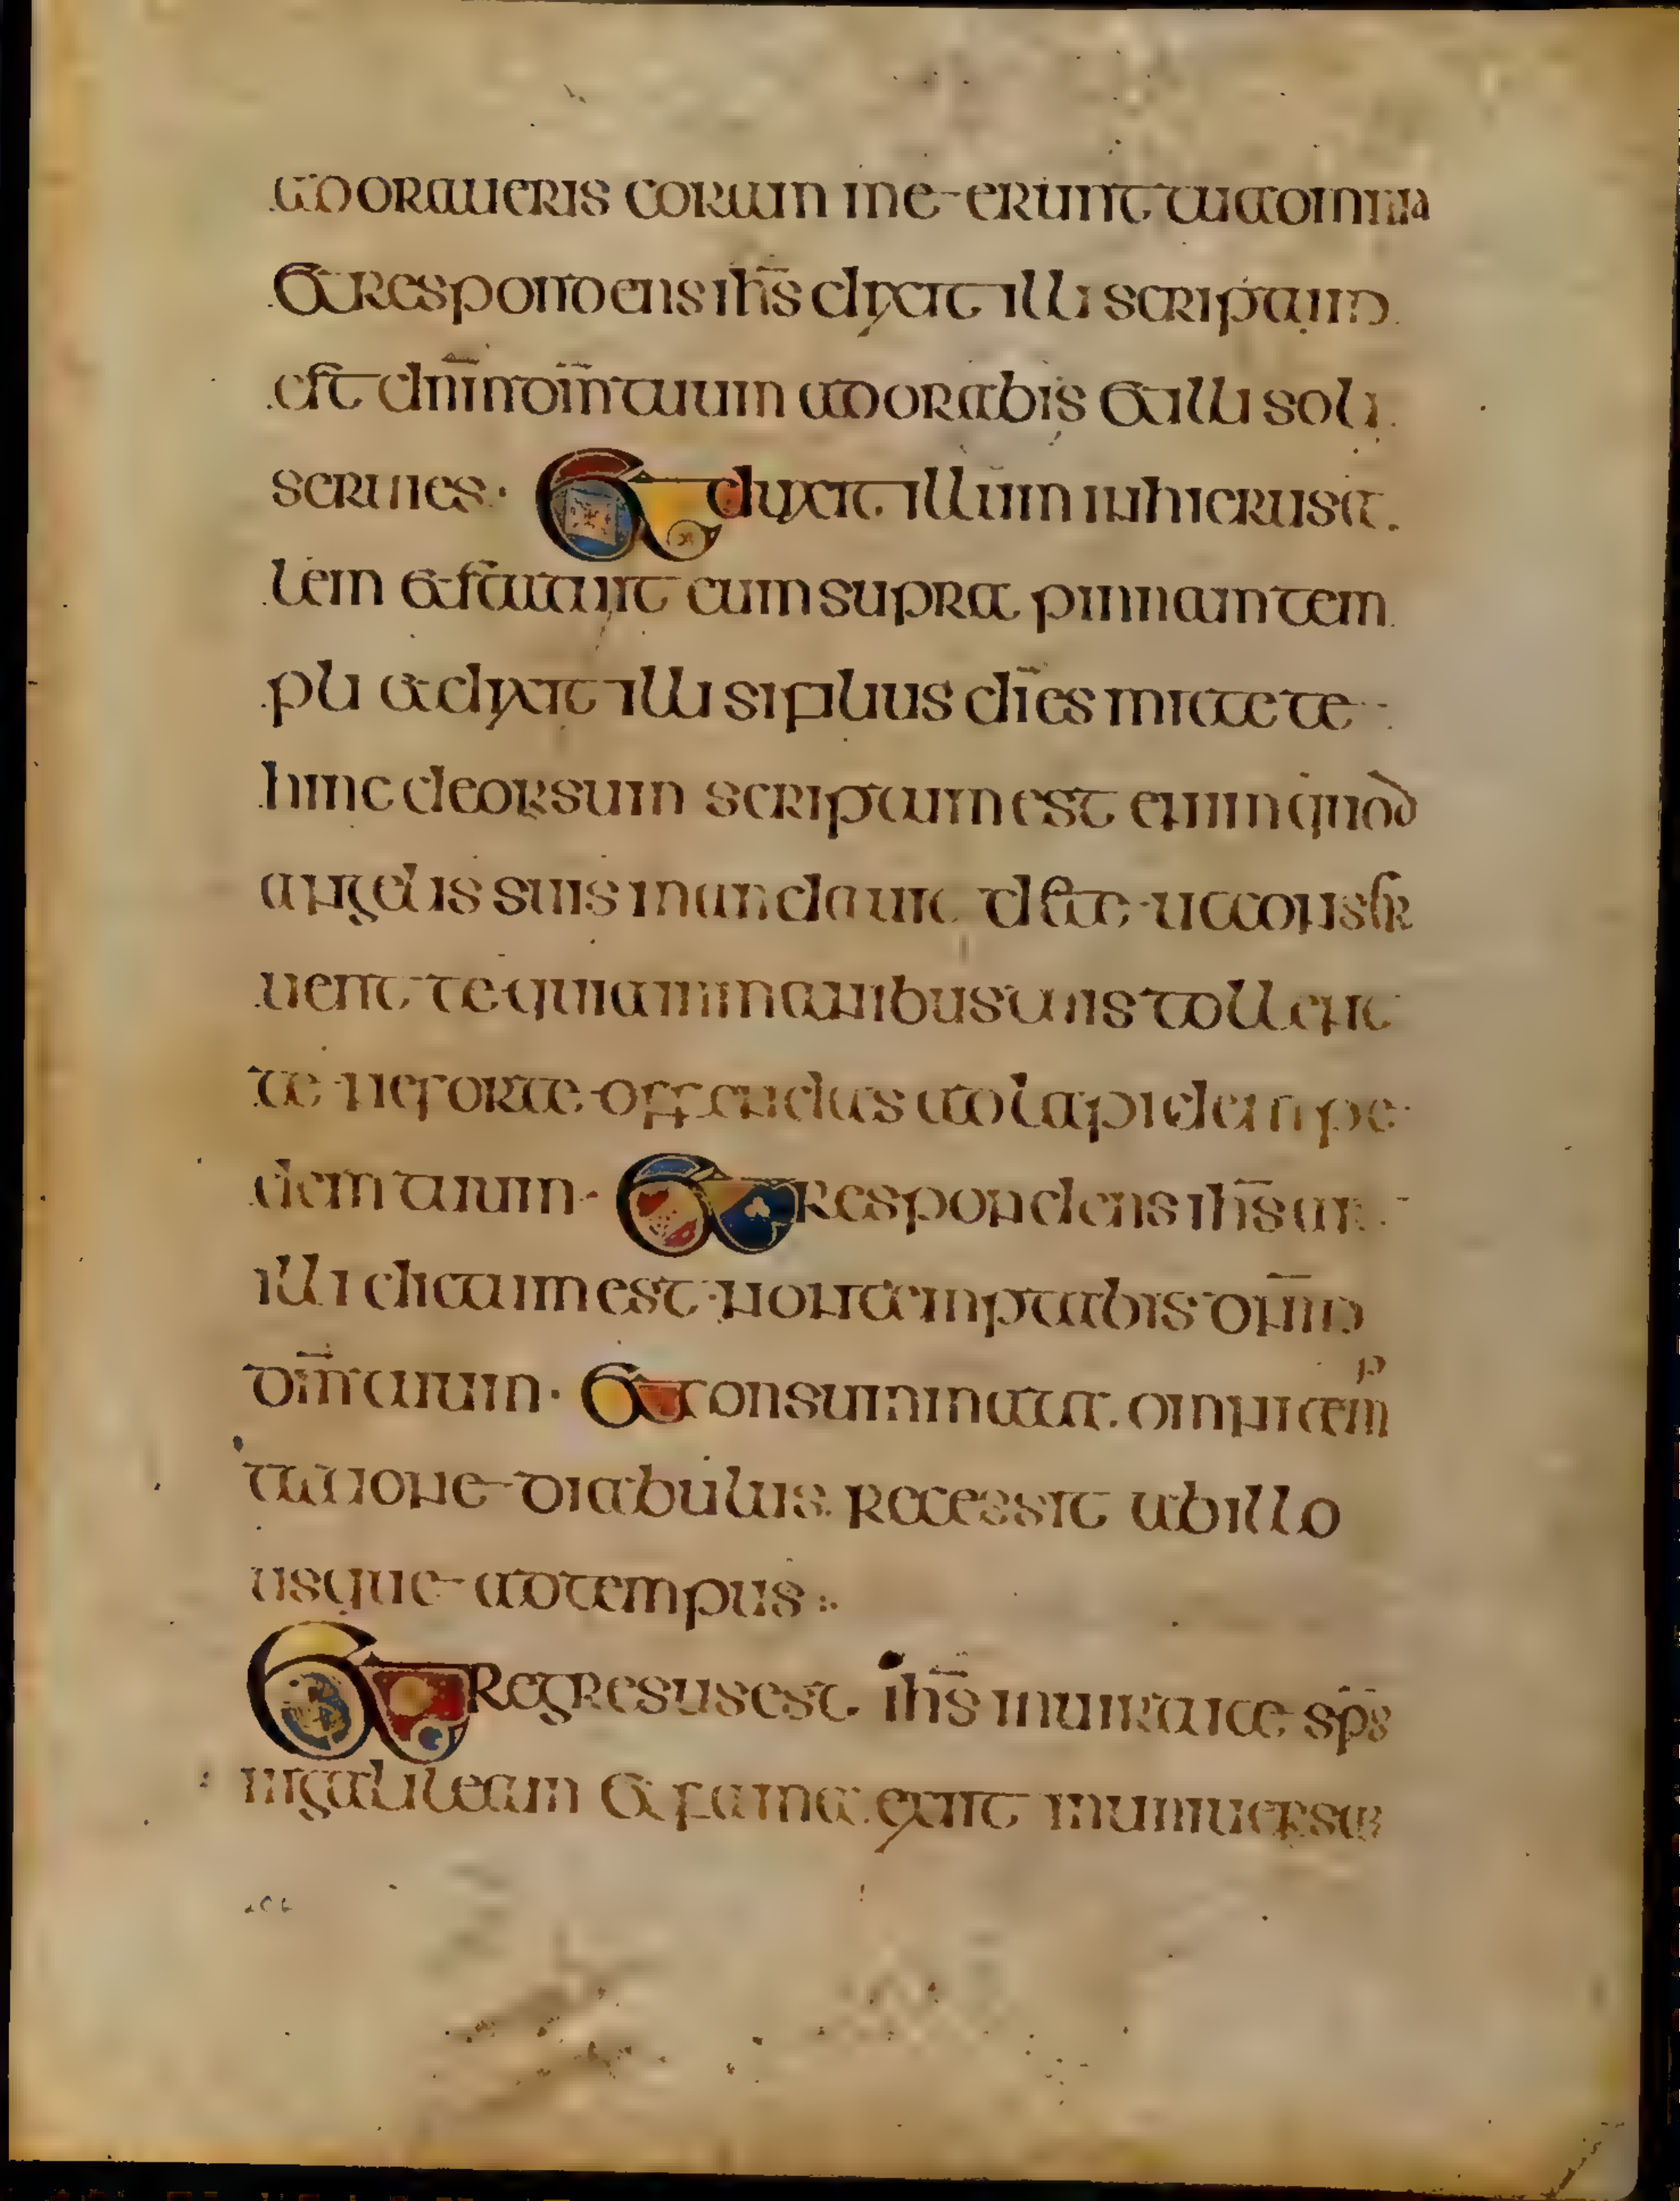 adoraueris coram me erunt tua omnia
Et respondens ihs dixit illi scriptum
est dnm dm tuum adorabis et illi soli
seruies · Et duxit illum in hierusa
lem et statuit eum supra pinnam tem
pli et dixit illi si filius di es mitte te
hinc deorsum scriptum est enim quod
angelis suis mandauit de te ut conser
uent te quia in manibus suis tollent
te ne forte offendas ad lapidem pe
dem tuum · Et respondens ihs ait
illi dictum est non temptabis dnm
dm tuum · Et consummata omni tem
p
tatione diabulus recessit ab illo
usque ad tempus :·
Et regresus est ihs in uirtute sps
in galileam et fama exiit in uniuersa